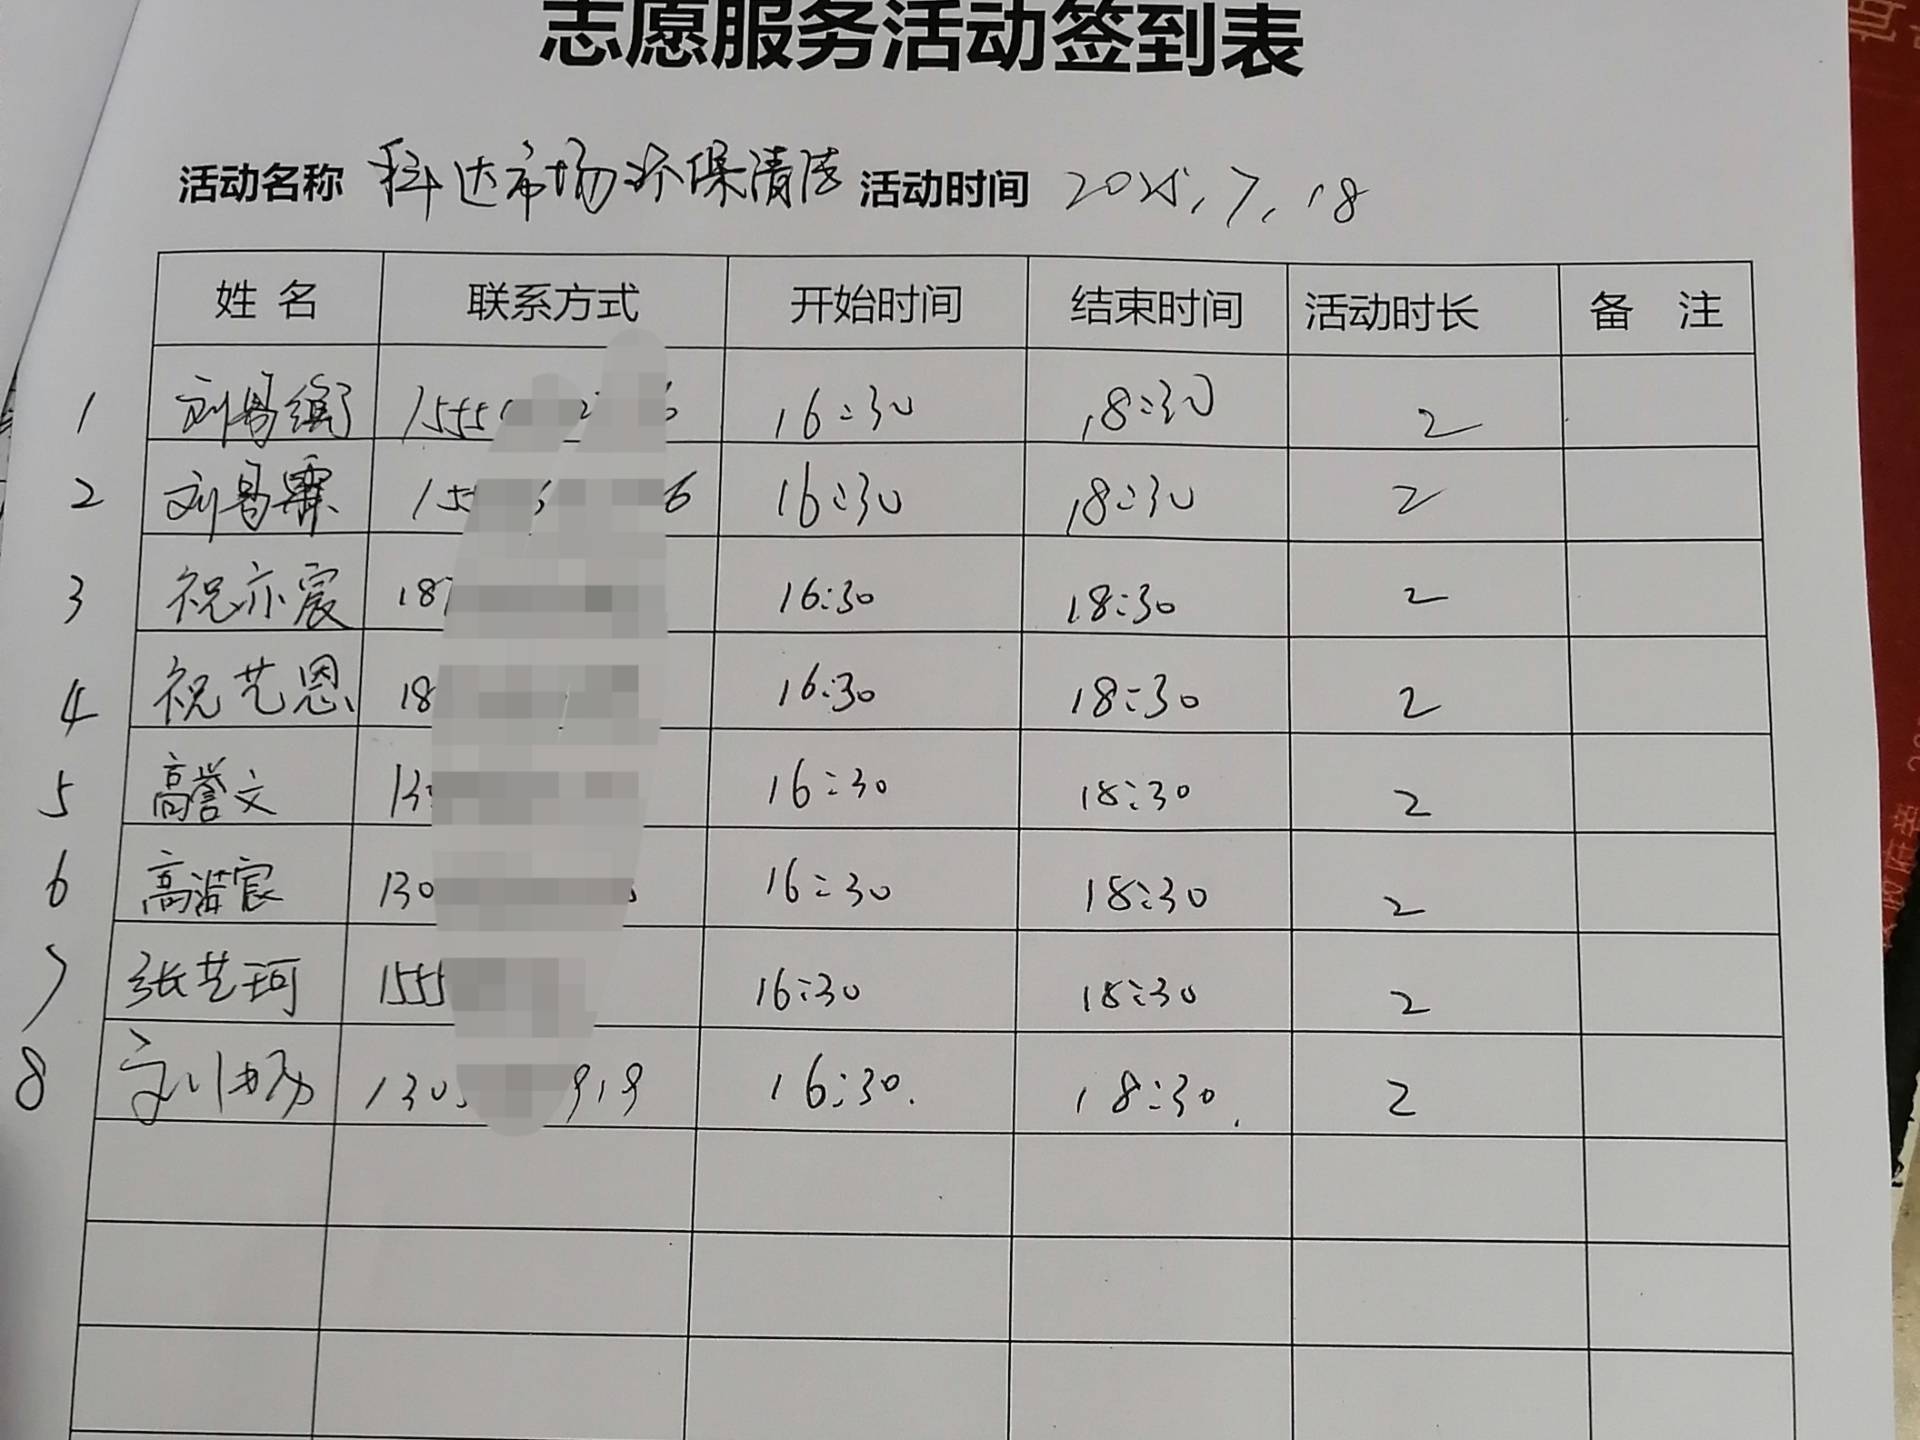 志愿服务活动签到表
活动名称 科达市场环保清洁 活动时间 2025.7.18
姓名 联系方式 开始时间 结束时间 活动时长 备 注
1 刘易 155 16:30 18:30 2
2 刘易霖 15 6 16:30 18:30 2
3 祝亦宸 18 16:30 18:30 2
4 祝艺恩 18 16:30 18:30 2
5 高誉文 13 16:30 18:30 2
6 高 宸 130 16:30 18:30 2
7 张艺珂 155 16:30 18:30 2
8 130 919 16:30. 18:30. 2